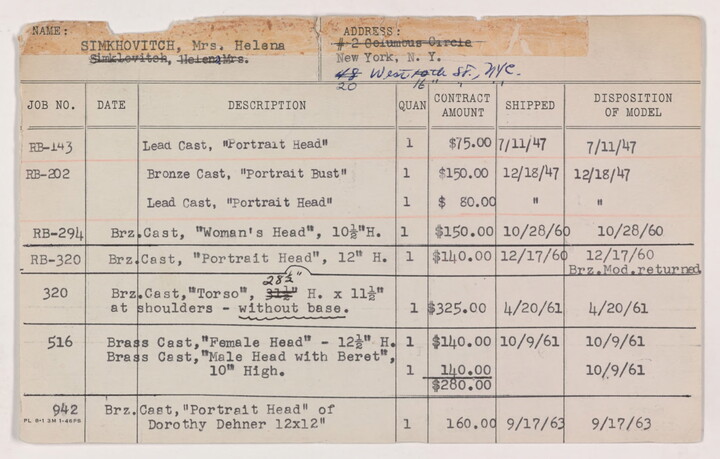 NAME: ADDRESS:
SIMKHOVITCH, Mrs. Helena # 2 Columbus Circle
Simklovitch, Helena Mrs. New York, N. Y.
48 West St., NYC.
20 16" " "
JOB NO. DATE DESCRIPTION QUAN CONTRACT AMOUNT SHIPPED DISPOSITION OF MODEL
RB-143 Lead Cast, "Portrait Head" 1 $75.00 7/11/47 7/11/47
RB-202 Bronze Cast, "Portrait Bust" 1 $150.00 12/18/47 12/18/47
Lead Cast, "Portrait Head" 1 $ 80.00 " "
RB-294 Brz.Cast, "Woman's Head", 10½"H. 1 $150.00 10/28/60 10/28/60
RB-320 Brz.Cast, "Portrait Head", 12" H. 1 $140.00 12/17/60 12/17/60
Brz.Mod.returned
28½"
320 Brz.Cast,"Torso", 31½" H. x 11½"
at shoulders - without base. 1 $325.00 4/20/61 4/20/61
516 Brass Cast,"Female Head" - 12½" H. 1 $140.00 10/9/61 10/9/61
Brass Cast,"Male Head with Beret",
10" High. 1 140.00 10/9/61
$280.00
942 Brz.Cast,"Portrait Head" of
PL 8-1 3M 1-46PB Dorothy Dehner 12x12" 1 160.00 9/17/63 9/17/63